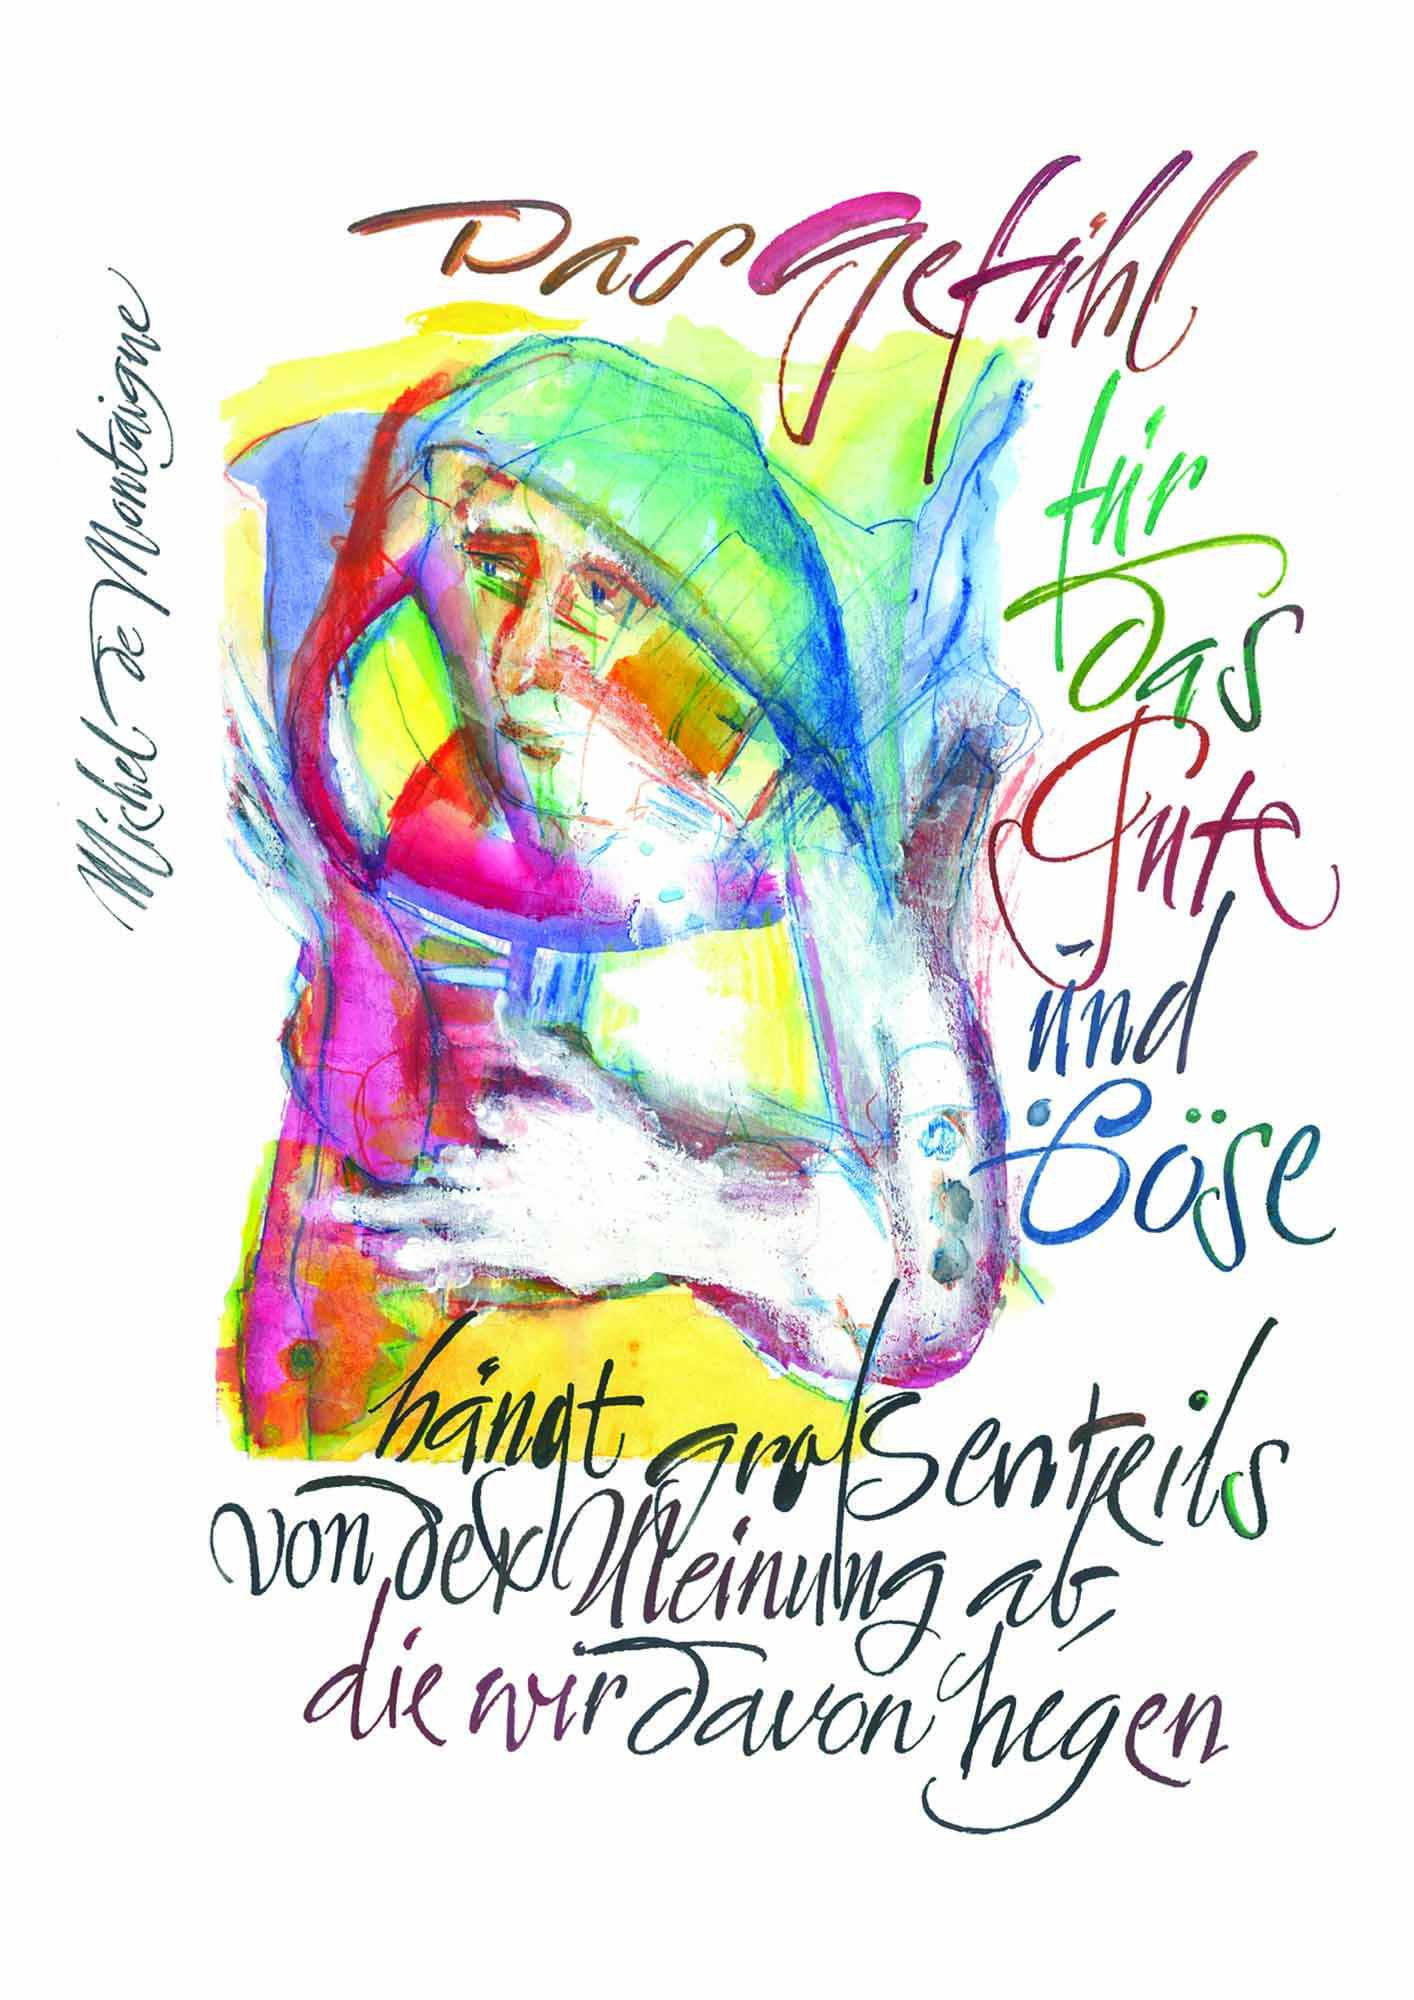 Das Gefühl
für
das
Gute
und
Böse
hängt großenteils
von der Meinung ab,
die wir davon hegen
Michel de Montaigne